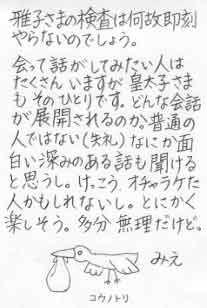 雅子さまの検査は何故即刻
やらないのでしょう。
会って話がしてみたい人は
たくさんいますが皇太子さま
もそのひとりです。どんな会話
が展開されるのか。普通の
人ではない(失礼)なにか面
白い深みのある話も聞ける
と思うし。けっこう、オチャラケた
人かもしれないし。とにかく
楽しそう。多分無理だけど。
みえ
コウノトリ